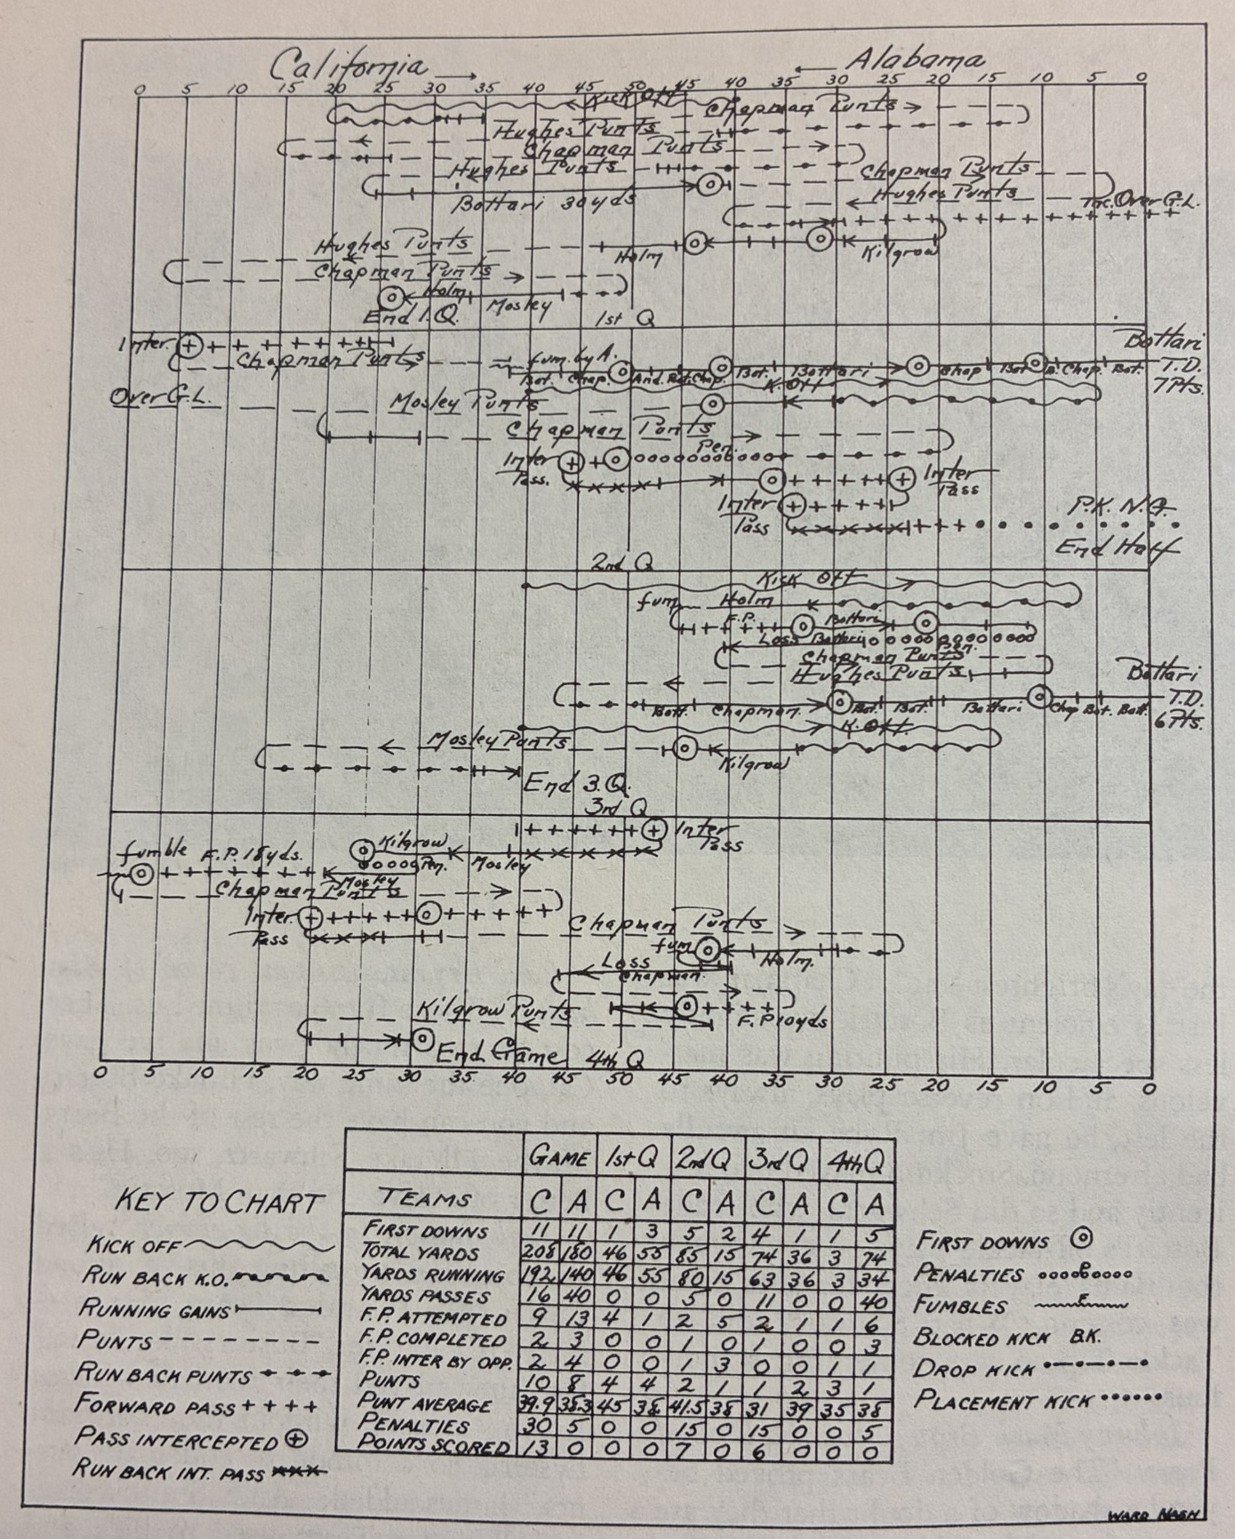 California Alabama
0 5 10 15 20 25 30 35 40 45 50 45 40 35 30 25 20 15 10 5 0
Kick Off
Chapman Punts
Hughes Punts
Chapman Punts
Hughes Punts Chapman Punts
Bottari 30yds Hughes Punts Inc. Over G.L.
Hughes Punts Holm Kilgrow
Chapman Punts
Holm Mosley
End 1.Q. 1st Q
Inter. Bottari
Chapman Punts fum. by A.
Bot. Chap. And. Bot. Chap. Bot. Bottari Chap Bot B. Chap. Bot. T.D.
K. Off 7Pts.
Over G.L. Mosley Punts
Chapman Punts
Pen.
Inter Pass. Inter Pass
Inter Pass P.K. N.G.
End Half
2nd Q
Kick Off
fum. Holm
F.P. Bottari
Loss Bottari Pen.
Chapman Punts
Hughes Punts Bottari
Bott. Chapman. Bot. Bot. Bottari Chap Bot. Bott. T.D.
K. Off. 6Pts.
Mosley Punts Kilgrow
End 3.Q.
3rd Q
Inter Pass
Kilgrow
fumble F.P. 15yds. Pen. Mosley
Mosley
Chapman Punts
Inter Pass Chapman Punts
fum Holm.
Loss Chapman.
Kilgrow Punts F.P 10yds
End Game 4th Q
0 5 10 15 20 25 30 35 40 45 50 45 40 35 30 25 20 15 10 5 0
KEY TO CHART
KICK OFF
RUN BACK K.O.
RUNNING GAINS
PUNTS
RUN BACK PUNTS
FORWARD PASS
PASS INTERCEPTED
RUN BACK INT. PASS
GAME 1st Q 2nd Q 3rd Q 4th Q
TEAMS C A C A C A C A C A
FIRST DOWNS 11 11 1 3 5 2 4 1 1 5
TOTAL YARDS 208 180 46 55 85 15 74 36 3 74
YARDS RUNNING 192 140 46 55 80 15 63 36 3 34
YARDS PASSES 16 40 0 0 5 0 11 0 0 40
F.P. ATTEMPTED 9 13 4 1 2 5 2 1 1 6
F.P. COMPLETED 2 3 0 0 1 0 1 0 0 3
F.P. INTER BY OPP. 2 4 0 0 1 3 0 0 1 1
PUNTS 10 8 4 4 2 1 1 2 3 1
PUNT AVERAGE 39.9 38.3 45 38 41.5 38 31 39 35 38
PENALTIES 30 5 0 0 15 0 15 0 0 5
POINTS SCORED 13 0 0 0 7 0 6 0 0 0
FIRST DOWNS
PENALTIES P
FUMBLES F
BLOCKED KICK B.K.
DROP KICK
PLACEMENT KICK
WARD NASH